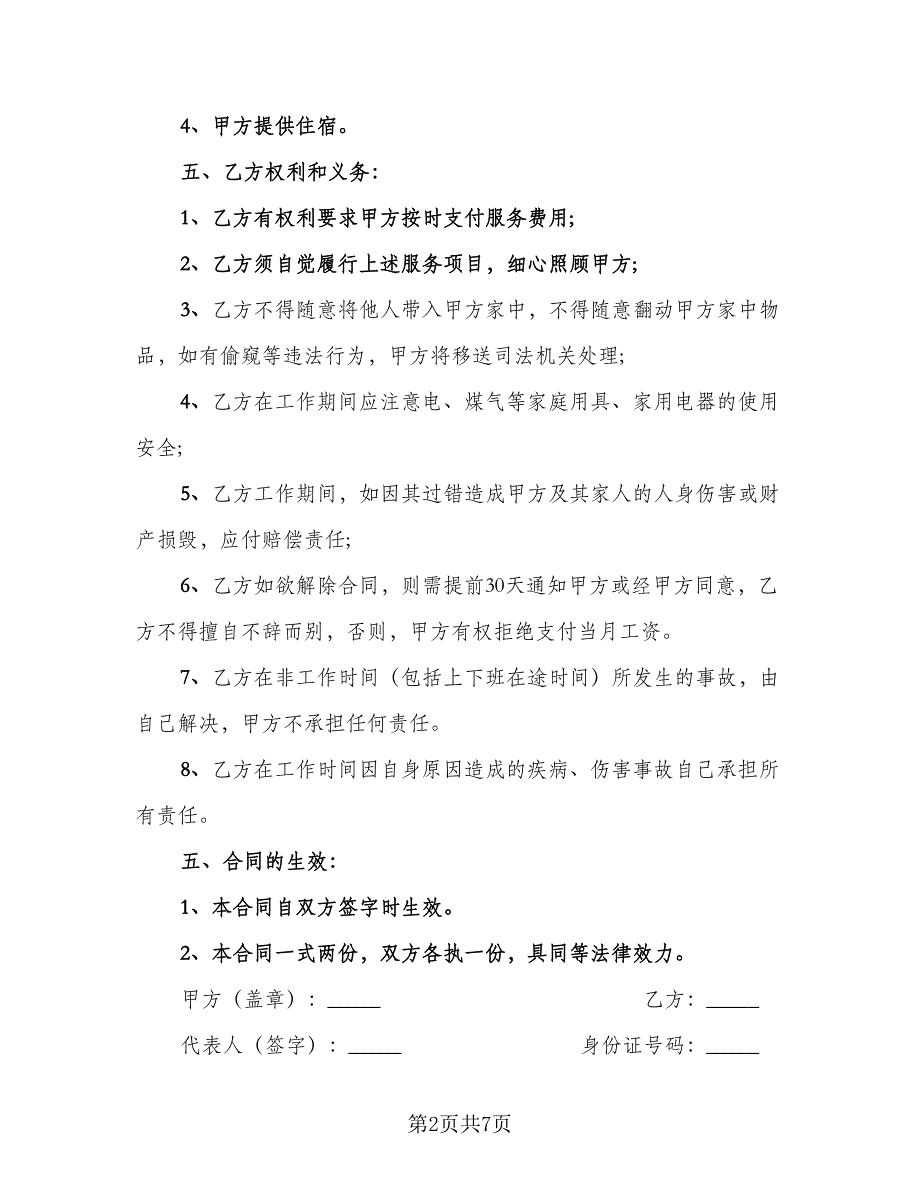 4、甲方提供住宿。
五、乙方权利和义务：
1、乙方有权利要求甲方按时支付服务费用;
2、乙方须自觉履行上述服务项目，细心照顾甲方;
3、乙方不得随意将他人带入甲方家中，不得随意翻动甲方家中物
品，如有偷窥等违法行为，甲方将移送司法机关处理;
4、乙方在工作期间应注意电、煤气等家庭用具、家用电器的使用
安全;
5、乙方工作期间，如因其过错造成甲方及其家人的人身伤害或财
产损毁，应付赔偿责任;
6、乙方如欲解除合同，则需提前30天通知甲方或经甲方同意，乙
方不得擅自不辞而别，否则，甲方有权拒绝支付当月工资。
7、乙方在非工作时间（包括上下班在途时间）所发生的事故，由
自己解决，甲方不承担任何责任。
8、乙方在工作时间因自身原因造成的疾病、伤害事故自己承担所
有责任。
五、合同的生效：
1、本合同自双方签字时生效。
2、本合同一式两份，双方各执一份，具同等法律效力。
甲方（盖章）：_____ 乙方：_____
代表人（签字）：_____ 身份证号码：_____
第2页共7页